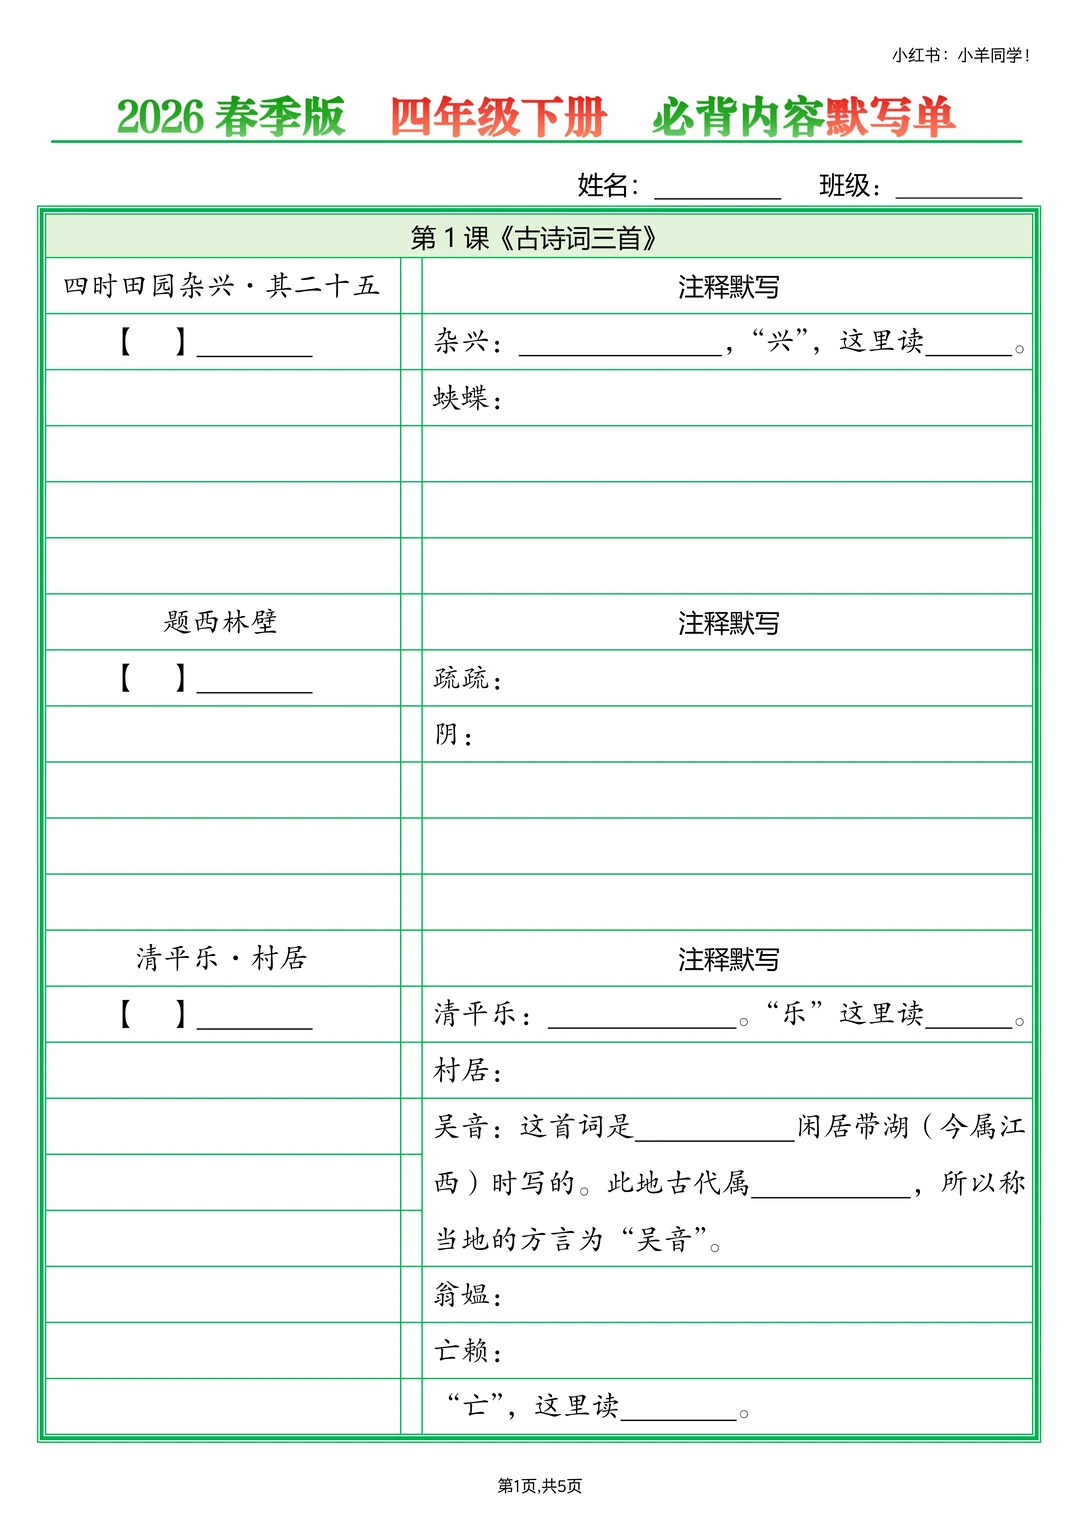 小红书：小羊同学！
2026 春季版 四年级下册 必背内容默写单
姓名：__________ 班级：__________
第 1 课《古诗词三首》
四时田园杂兴·其二十五
注释默写
【 】________
杂兴：______________，“兴”，这里读______。
蛱蝶：
题西林壁
注释默写
【 】________
疏疏：
阴：
清平乐·村居
注释默写
【 】________
清平乐：_____________。“乐”这里读______。
村居：
吴音：这首词是___________闲居带湖（今属江
西）时写的。此地古代属___________，所以称
当地的方言为“吴音”。
翁媪：
亡赖：
“亡”，这里读________。
第1页,共5页